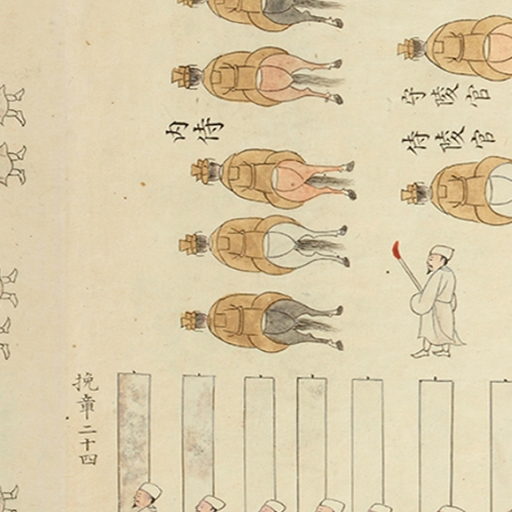 守陵官
侍陵官
内侍
挽章二十四